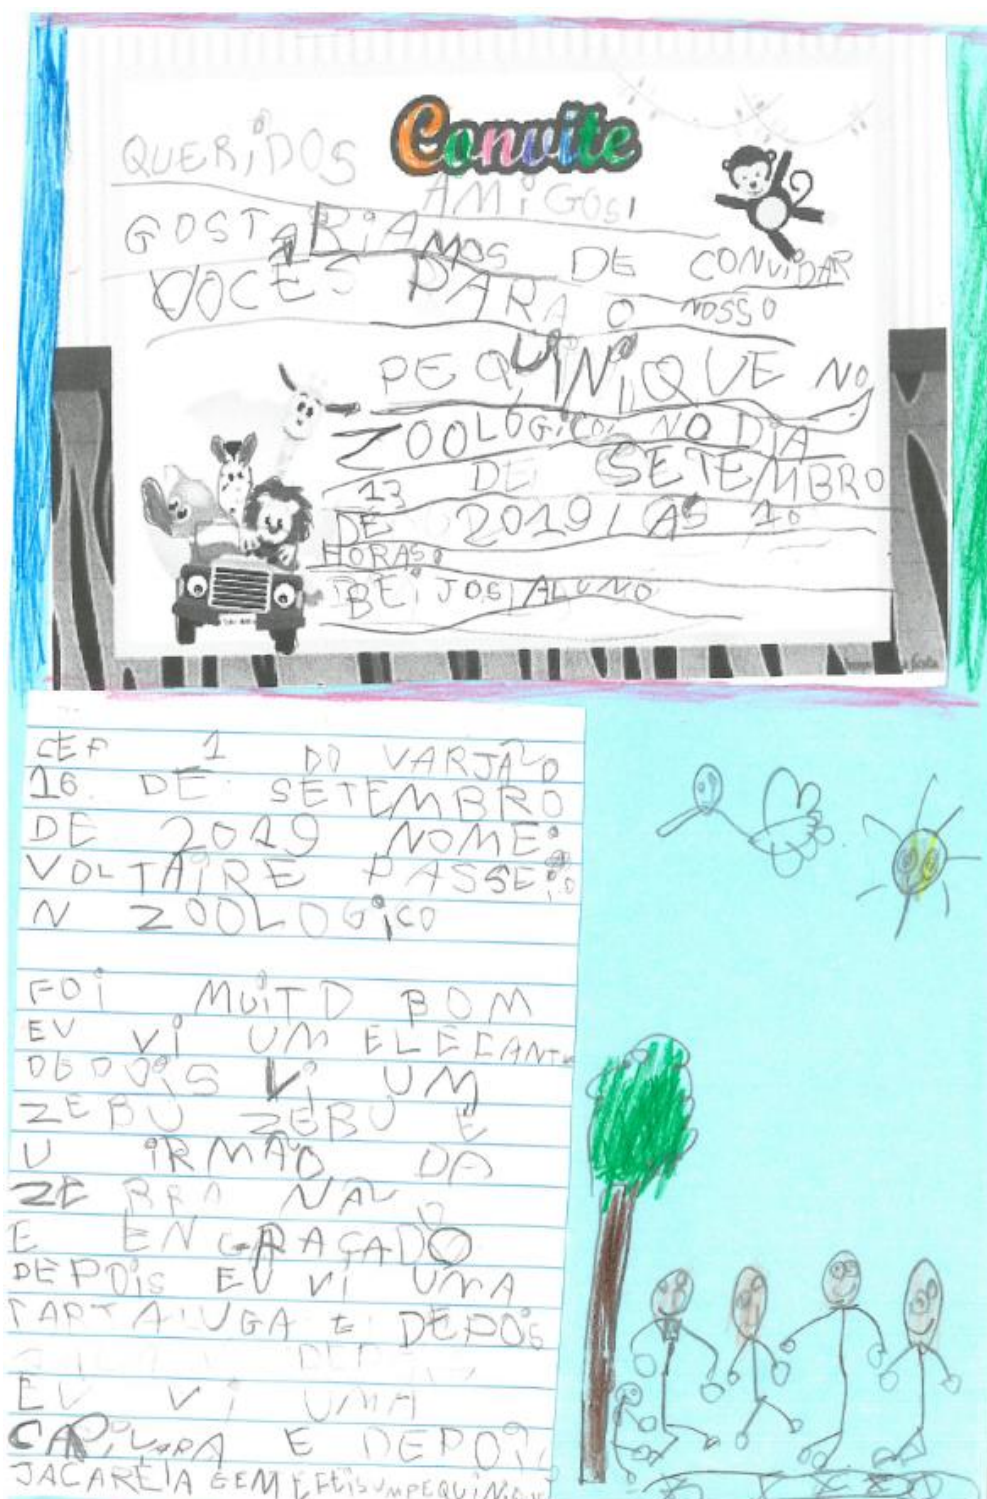 Convite
QUERIDOS
AMIGOS!
GOSTARIAMOS DE CONVIDAR
VOCÊS PARA O NOSSO
PEQUINIQUE NO
ZOOLÓGICO, NO DIA
13 DE SETEMBRO
DE 2019, AS 10
HORAS.
BEIJOS, ALUNO
CEF 1 DO VARJÃO
16 DE SETEMBRO
DE 2019 NOME:
VOLTAIRE PASSEIO
N ZOOLOGICO
FOI MUITO BOM
EU VI UM ELEFANTE
DEPOIS VI UM
ZEBU ZEBU E
U IRMÃO DA
ZEBRA NÃO
E ENGRAÇADO
DEPOIS EU VI UMA
TARTALUGA E DEPOIS
EU VI UMA
CAPIVARA E DEPOIS
JACARE